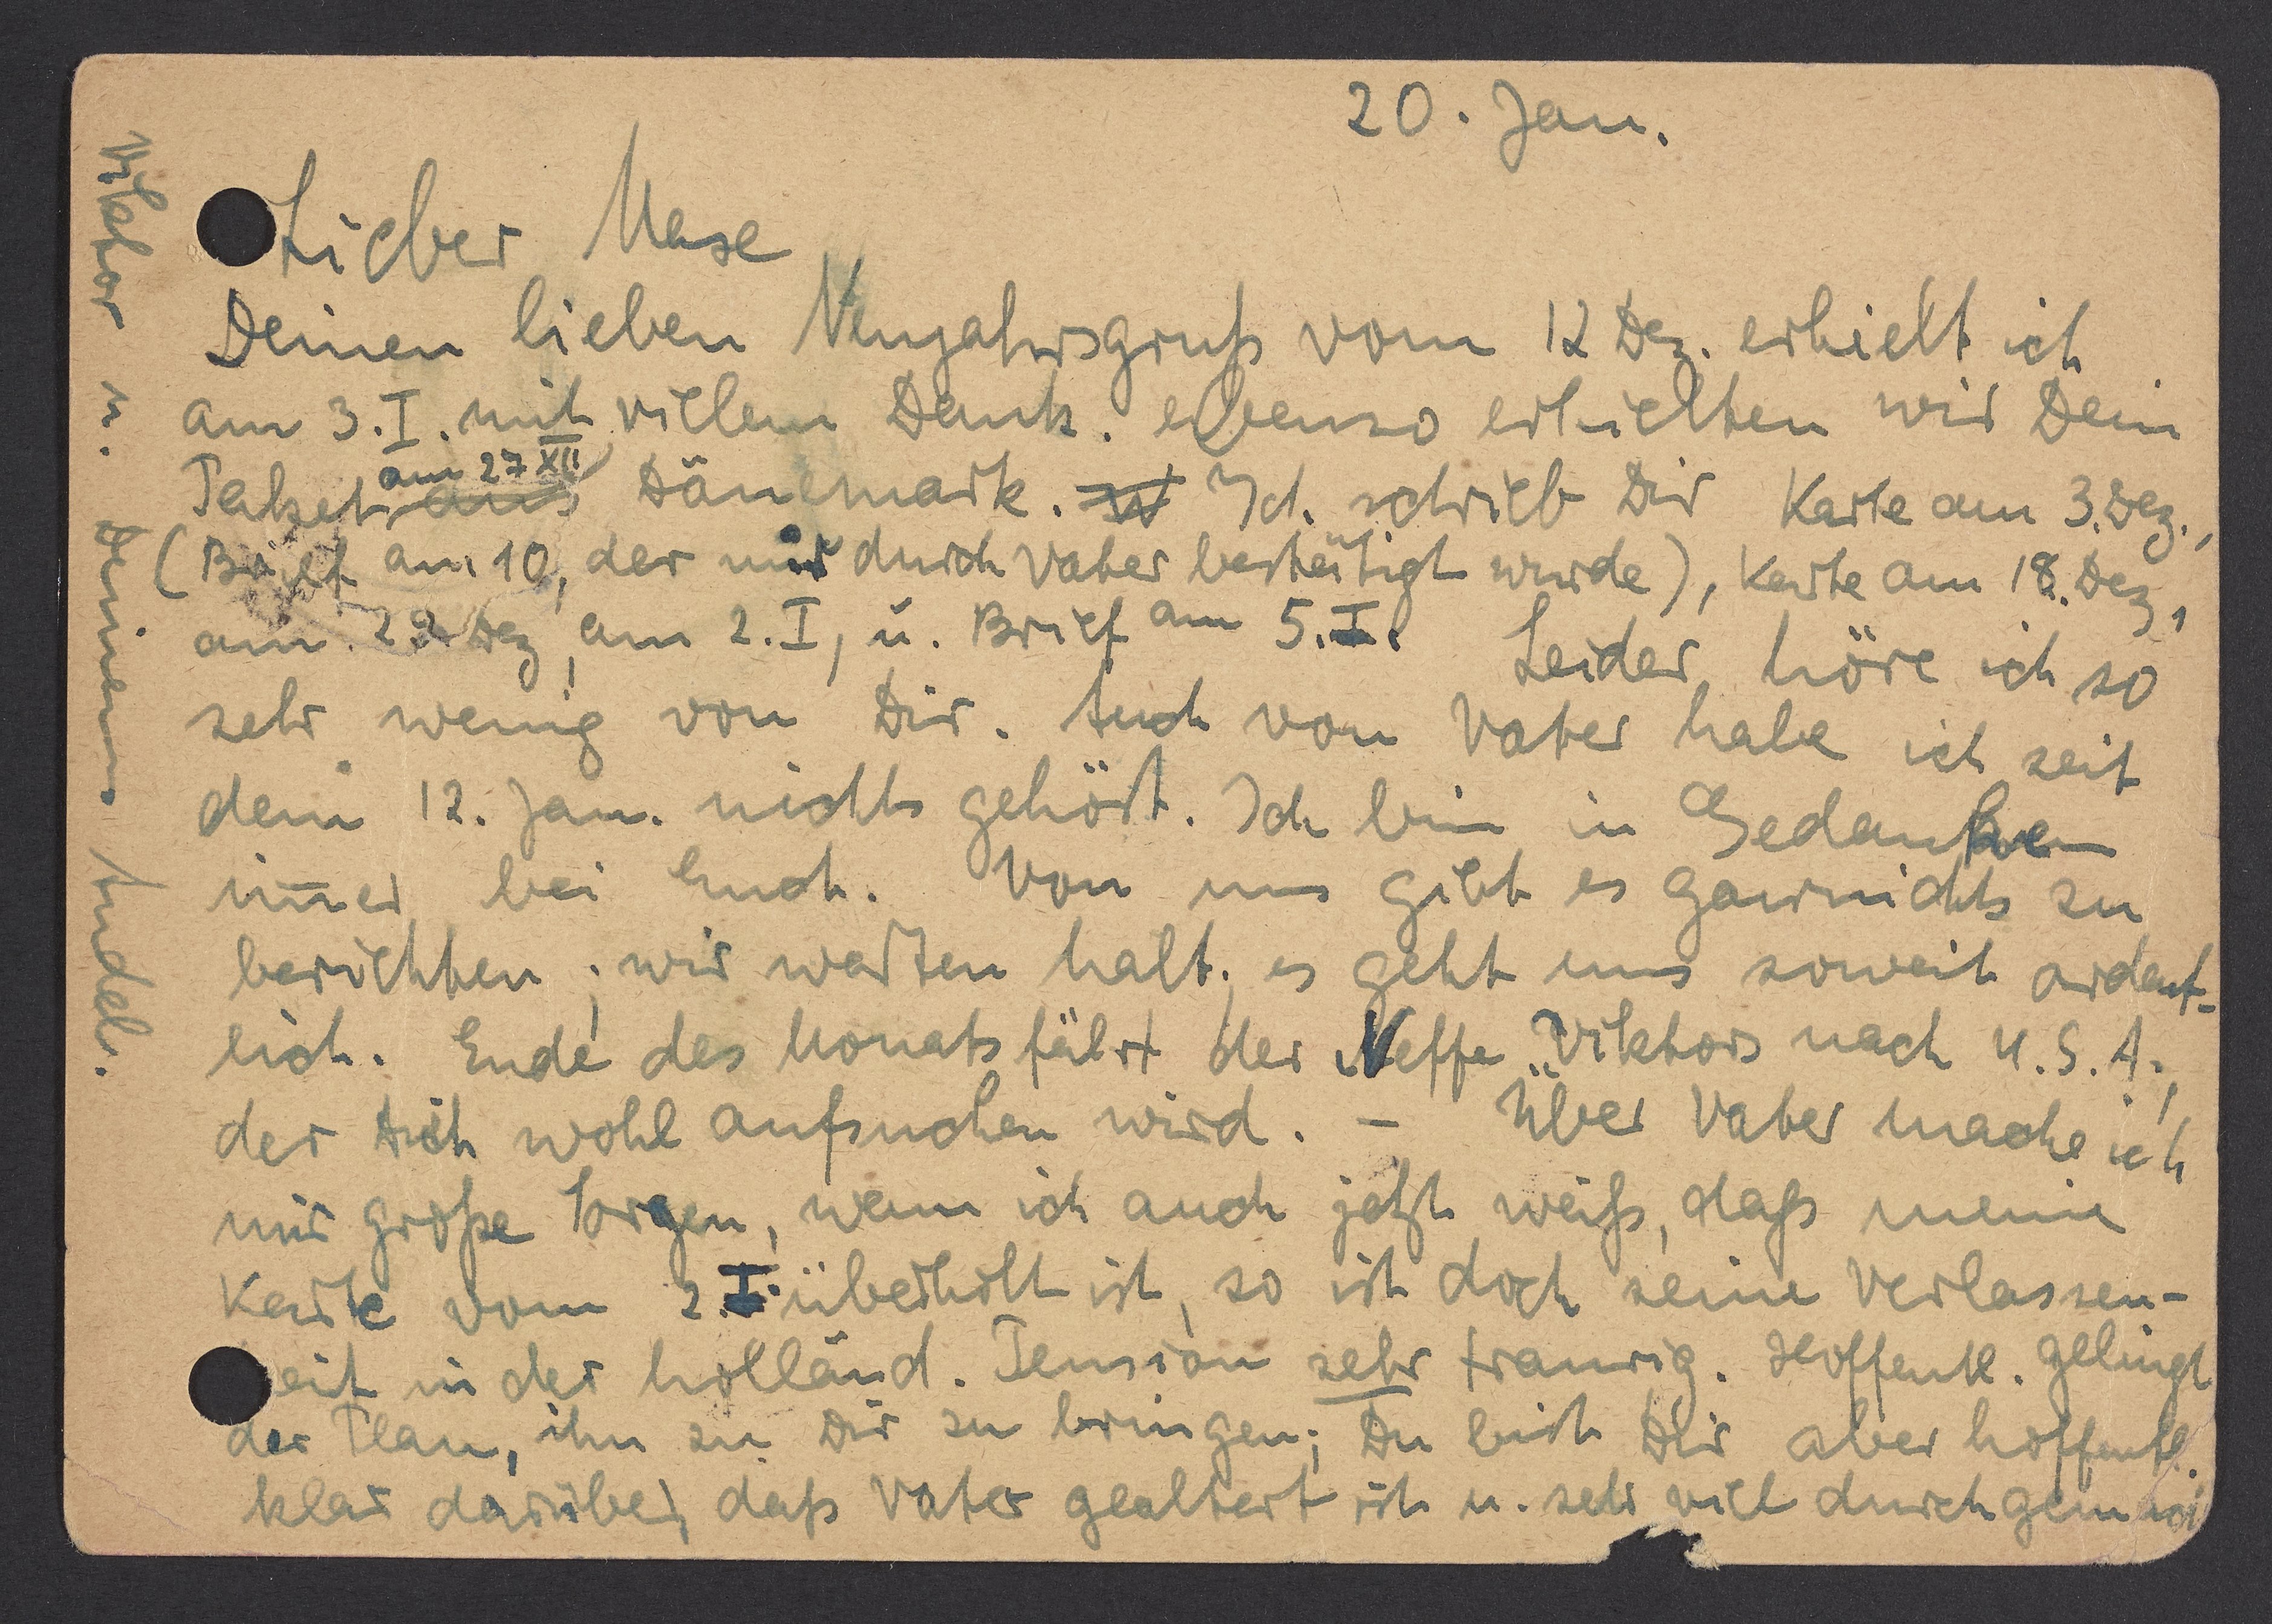 20. Jan.
Lieber Mase
Deinen lieben Neujahrsgruß vom 12 Dez. erhielt ich
am 3. I. mit vielem Dank. ebenso erhielten wir Dein
Paket am 27 XII aus Dänemark. Ich schrieb Dir Karte am 3. Dez.,
(Brief am 10, der mir durch Vater bestätigt wurde), Karte am 18. Dez,
am 22 Dez, am 2. I, u. Brief am 5. I. Leider höre ich so
sehr wenig von Dir. Auch von Vater habe ich seit
dem 12. Jan. nichts gehört. Ich bin in Gedanken
im̅er bei Euch. Von uns gibt es garnichts zu
berichten; wir warten halt; es geht uns soweit ordent-
lich. Ende des Monats fährt der Neffe Viktors nach U.S.A.,
der Dich wohl aufsuchen wird. – Über Vater mache ich
mir große Sorgen, wenn ich auch jetzt weiß, daß meine
Karte vom 2. I. überholt ist, so ist doch seine Verlassen-
heit in der holländ. Pension sehr traurig. Hoffentl. gelingt
der Plan, ihn zu Dir zu bringen; Du bist Dir aber hoffentl.
klar darüber, daß Vater gealtert ist u. sehr viel durchgemacht
Viktor u.